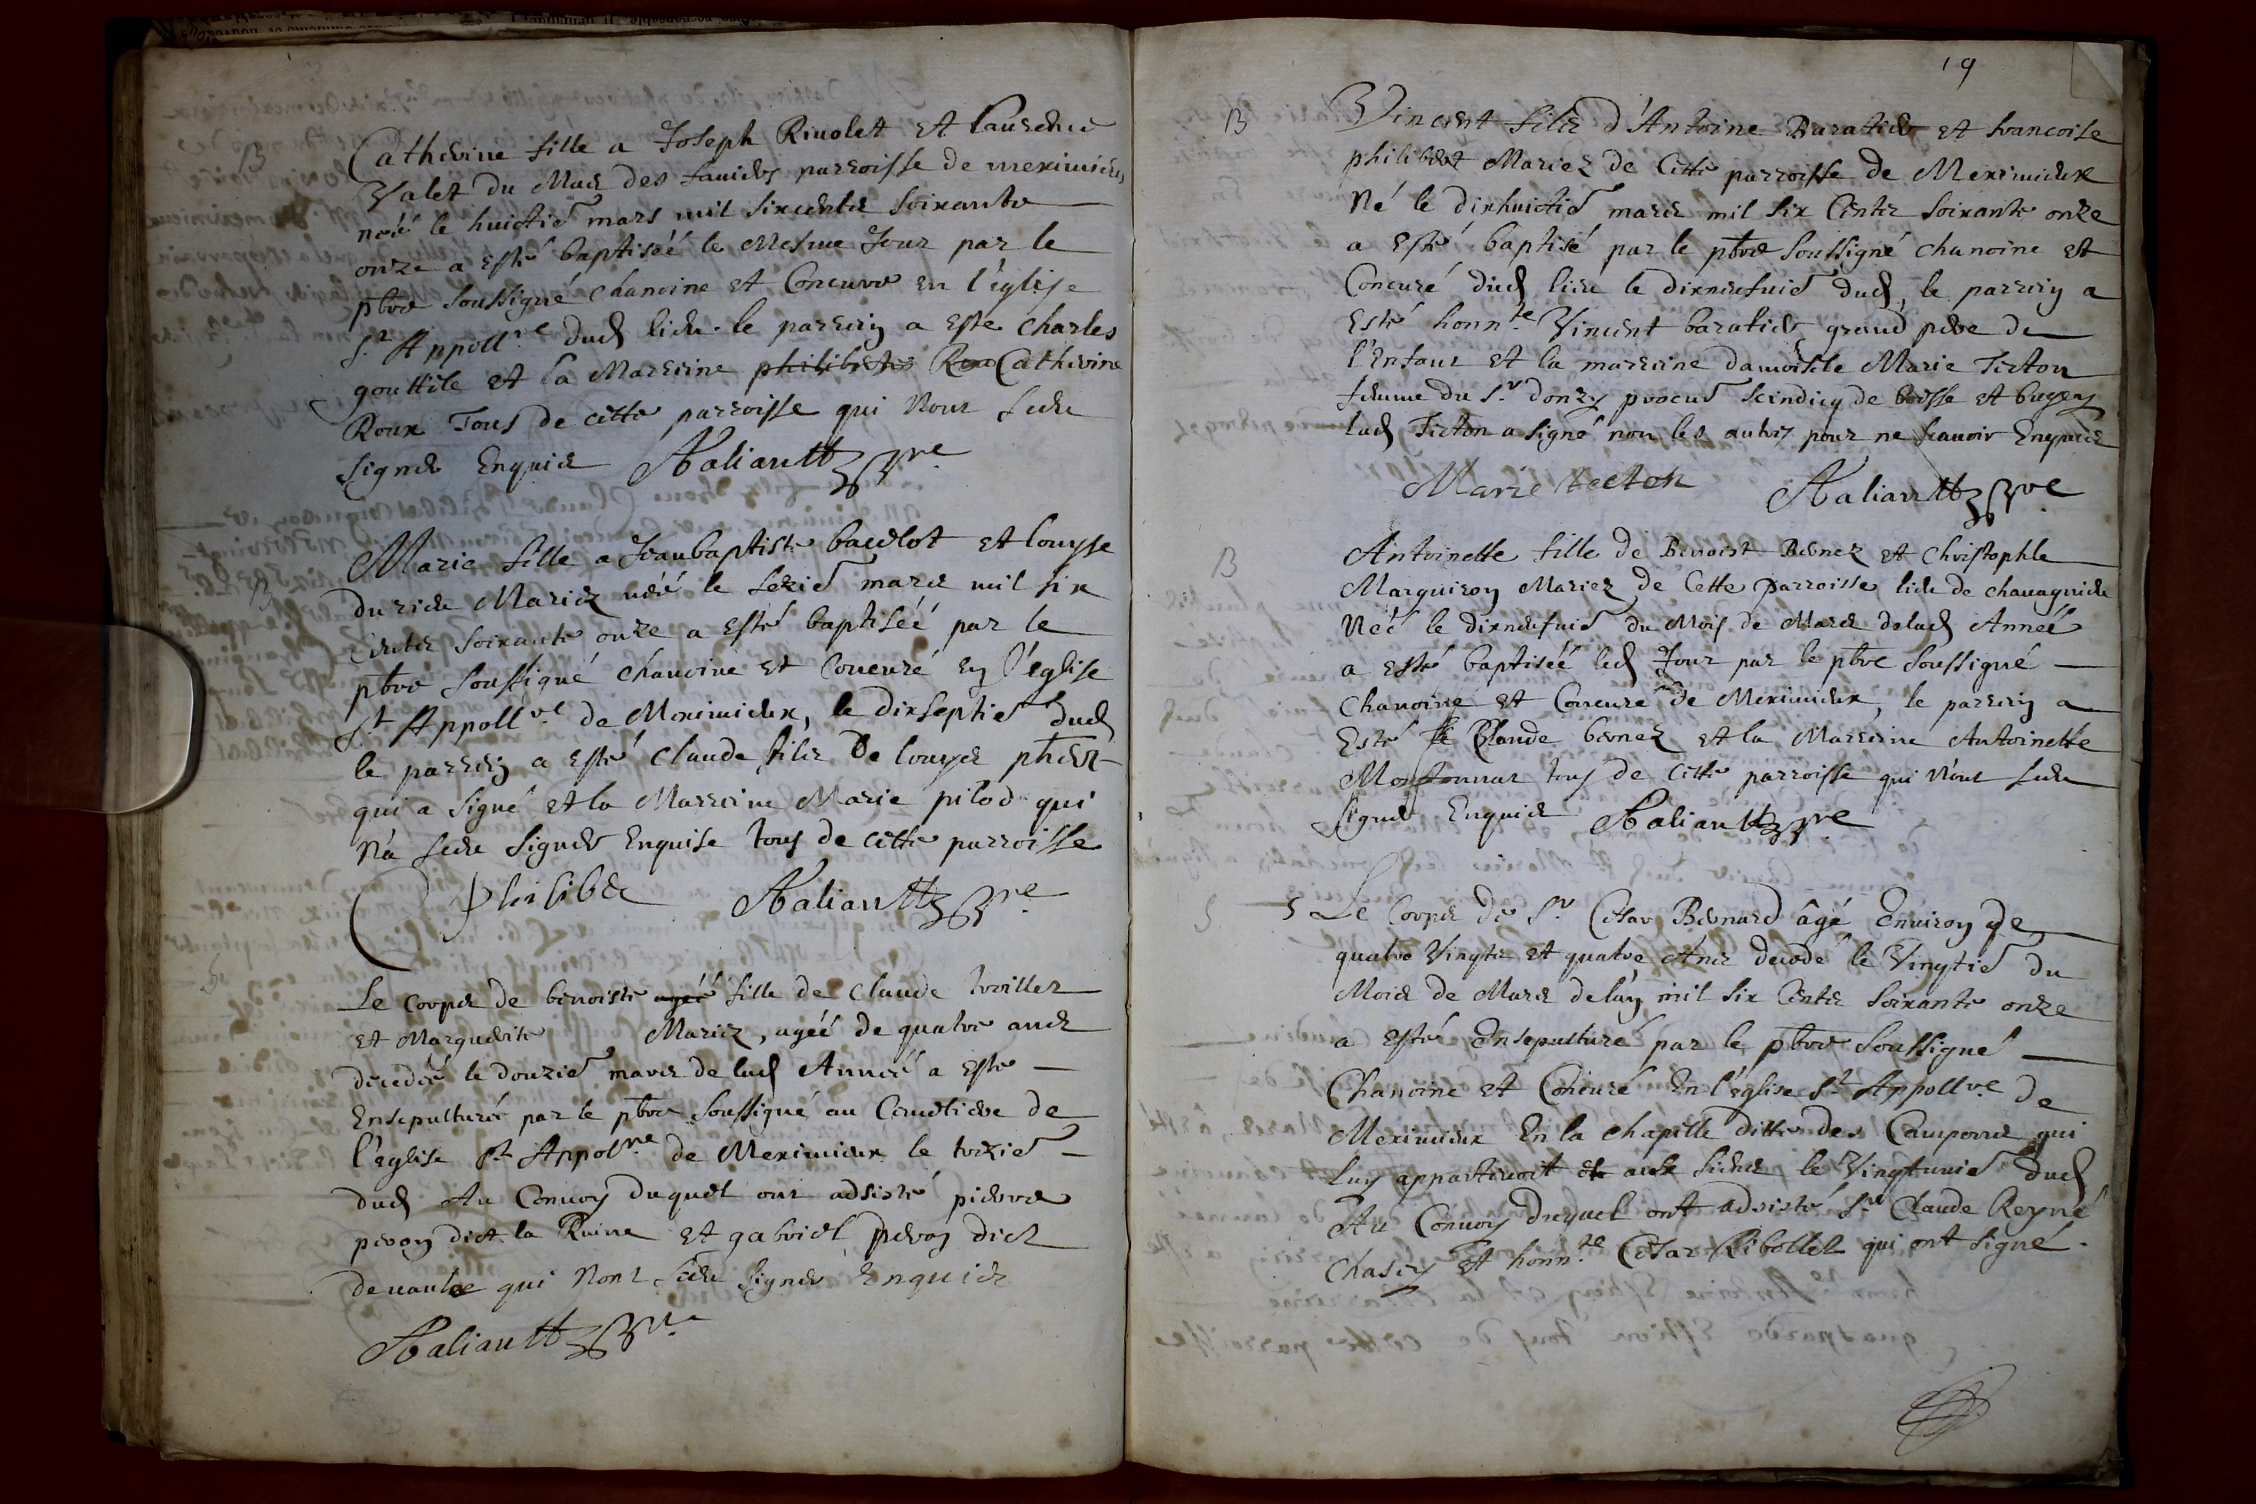 B
Catherine fille a Joseph Riuolet et Laurence
Valet du Mas des fauies parroisse de meximieux
néé le huictie mars mil six cents soixante
onze a esté baptiséé le Mesme Jour par le
pbre soussigné chanoine et Concuré en l'église
St Appollre dud lieu. le parrein a este Charles
gouttile et la Marreine philiberte Catherine
Roux Tous de cette parroisse qui Nont sceu
signer Enquis Aaliantt pbre
B
Marie fille a Jeanbaptiste bacelot et Louyse
durieu Mariez néé le sezie mars mil six
Cents soixante onze a esté baptiséé par le
pbre soussigné chanoine et Concuré en l'église
St Appollre de Meximieux, le dixseptie dud
le parrein a esté Claude fils de louys phbert
qui a signé et la Marreine Marie pilod qui
N'a sceu signer Enquise tous de cette parroisse
C philiber Aaliantt pbre
S
Le corps de benoiste agéé fille de Claude
et Marguerite Mariez, agéé de quatre ans
decedéé le douzie mars de lad Annéé a esté
Ensepulturéé par le pbre soussigné au Cemetiere de
l'église St Appolre de Meximieux le treizie
dud Au Conuoy duquel ont adsisté pierre
peron dict la Ruine et gabriel peron dict
deuaux qui Nont sceu signer Enquis
Aaliantt pbre
19
B
Vincent fils d'Antoine Baratier et francoise
philibert Mariez de Cette parroisse de Meximieux
Né le dixhuictie mars mil six Cents soixante onze
a Esté baptisé par le pbre soussigné chanoine et
Concuré dud lieu le dixneufuie dud, le parrein a
Esté honnte Vincent baratier grand pere de
l'Enfant et la marreine damoiselle Marie Tirton
femme du Sr donzy procur scindicq de bresse et bugey
lad Tirton a signé non les autres pour ne scauoir Enquis
Marie tecton Aaliantt pbre
B
Antoinette fille de Benoist Bernez et Christophle
Marguiron Mariez de Cette Parroisse lieu de chauagnieu
Néé le dixneufuie du Mois de Mars delad Annéé
a esté baptiséé led Jour par le pbre soussigné
Chanoine et Concuré de Meximieux, le parrein a
Esté Claude bernez et la Marreine Antoinette
Monfonnas tous de Cette parroisse qui N'ont sceu
signer Enquis Aaliantt pbre
S
S Le Corps de Sr Cesar Bernard âgé Enuiron de
quatre Vingts et quatre Ans decedé le Vingtie du
Mois de Mars de l'an mil six Cents soixante onze
a esté Ensepulturé par le pbre soussigné
Chanoine et Concuré En l'église St Appollre de
Meximieux En la chapelle ditte des Campons qui
luy appartenoit et aux siens le Vingtunie dud
Au Conuoy duquel ont adsisté Sr Claude Reyné
Chasey et honnte Cesar Ribollet qui ont signé.